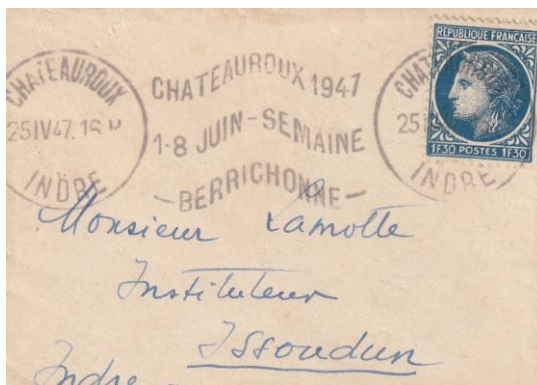 CHATEAUROUX
25 IV 47. 16 H
INDRE
CHATEAUROUX 1947
1-8 JUIN-SEMAINE
-BERRICHONNE-
CHAT
25
INDRE
REPUBLIQUE FRANÇAISE
1F30 POSTES 1F30
Monsieur Lamotte
Instituteur
Issoudun
Indre